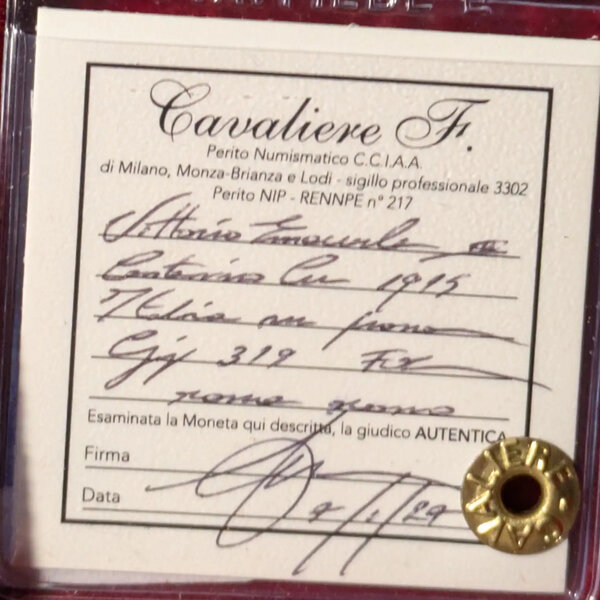 Cavaliere F.
Perito Numismatico C.C.I.A.A.
di Milano, Monza-Brianza e Lodi - sigillo professionale 3302
Perito NIP - RENNPE n° 217
Vittorio Emanuele III
Centesimo Cu 1915
Italia su prora
Gig 319 FDC
rame rosso
Esaminata la Moneta qui descritta, la giudico AUTENTICA
Firma
Data 9/1/24
CAVALIERE